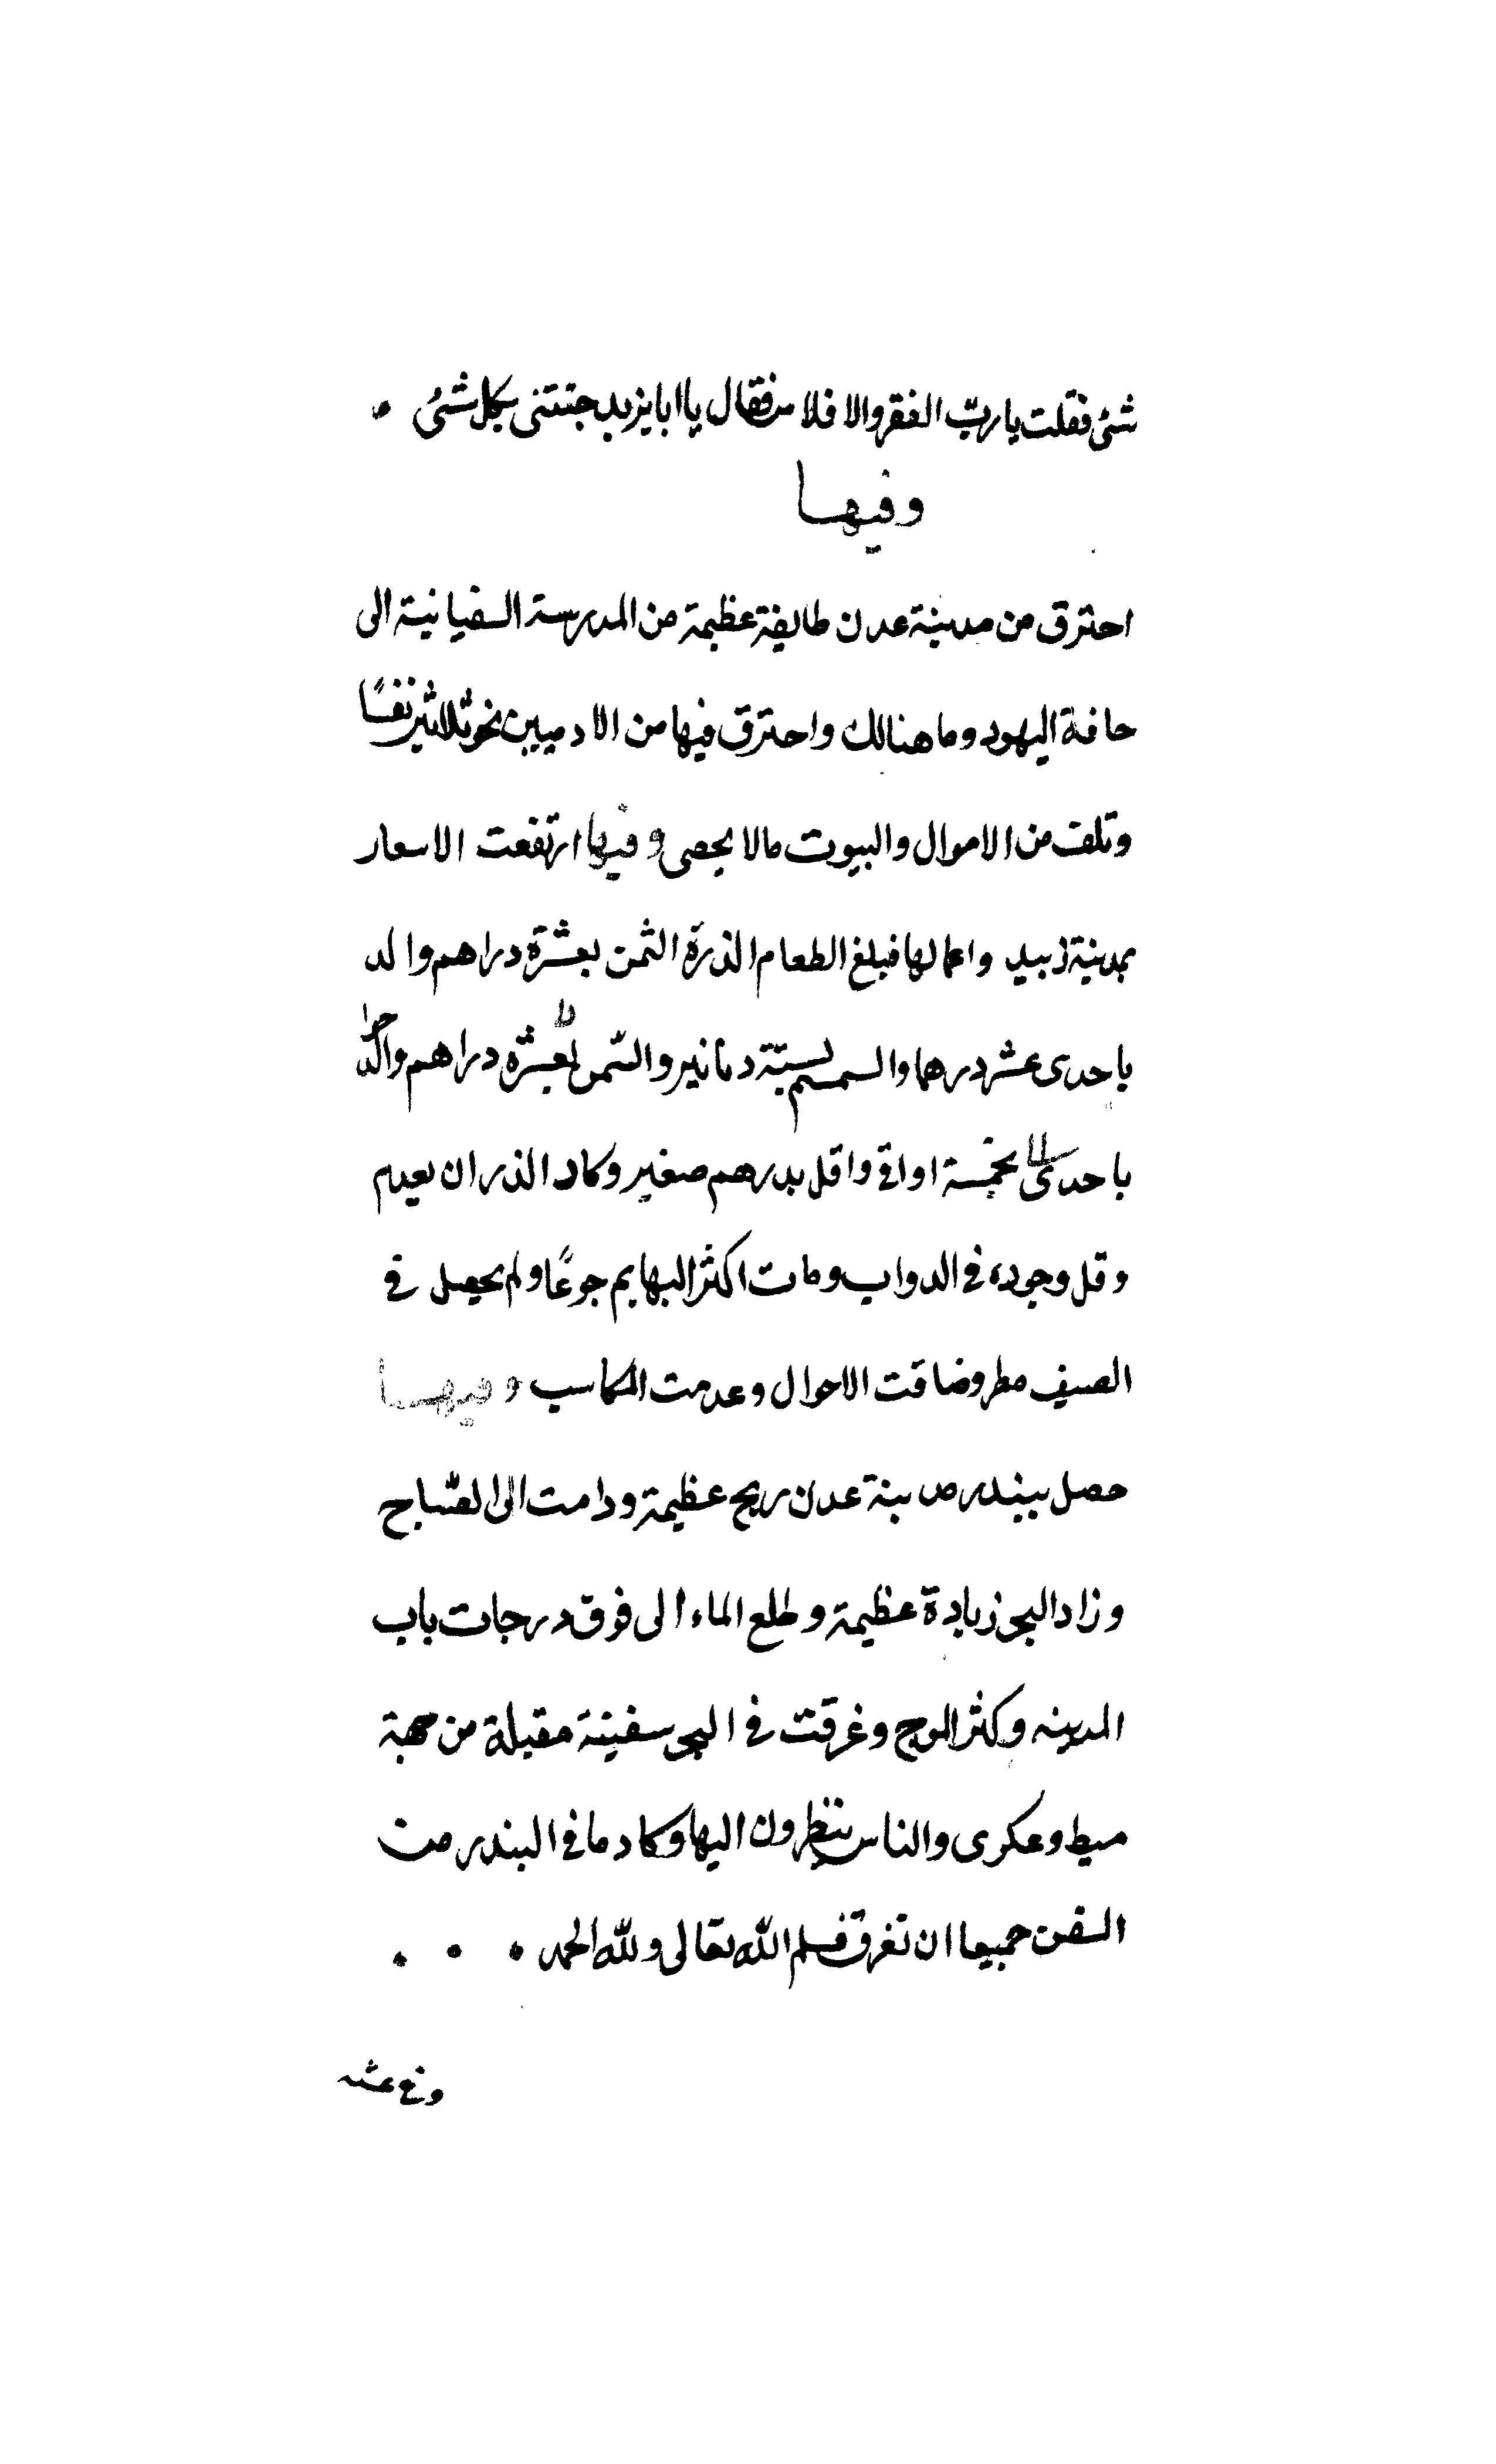 شئ فقلت يا ربّ الفقر والافلاس فقال يا ابا يزيد جئتنى بكل شئ
وفيها
احترق من مدينة عدن طايفة عظيمة من المدرسة السفيانية الى
حافة اليهود وما هنالك واحترق فيها من الادميين نحو ثلاثين نفسًا
وتلف من الاموال والبيوت مالا يحصى وفيها ارتفعت الاسعار
بمدينة زبيد واعمالها فبلغ الطعام الذرة الثمن بعشرة دراهم والد
باحدى عشر درهما والسمسم بستة دنانير والسمن بعشرة دراهم
باحدى بخمسة اواق واقل بدرهم صغير وكاد الذر ان يعدم
وقل وجوده فى الدواب ومات اكثر البهايم جوعًا ولم يحصل فى
الصيف مطر وضاقت الاحوال وعدمت المكاسب وفيها
حصل ببندر مدينة عدن ريح عظيمة ودامت الى الصّباح
وزاد البحر زيادة عظيمة وطلع الماء الى فوق درجات باب
المدينه وكثر الموج وغرقت فى البحر سفينة مقبلة من جهة
ميط وعكرى والناس ينظرون اليها وكاد ما فى البندر من
السفن جميعا ان تغرق فسلم الله تعالى ولله الحمد